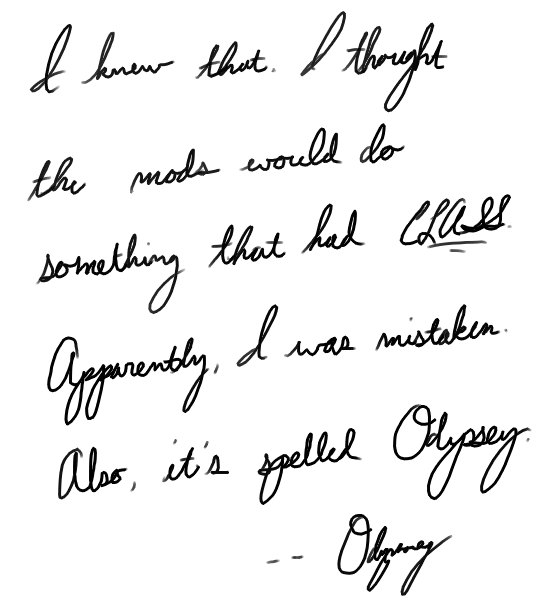 I knew that. I thought
the mods would do
something that had CLASS.
Apparently, I was mistaken.
Also, it's spelled Odyssey.
-- Odyssey